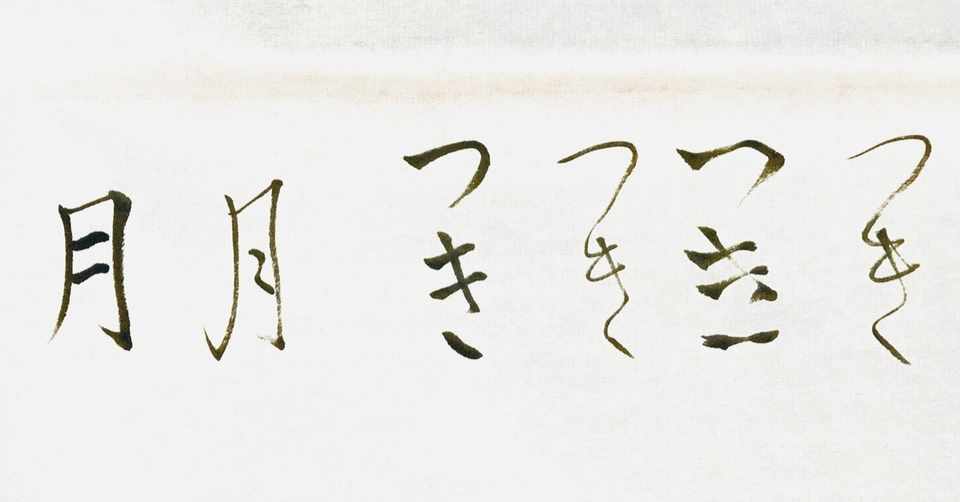 月 月 つき つき つき つき